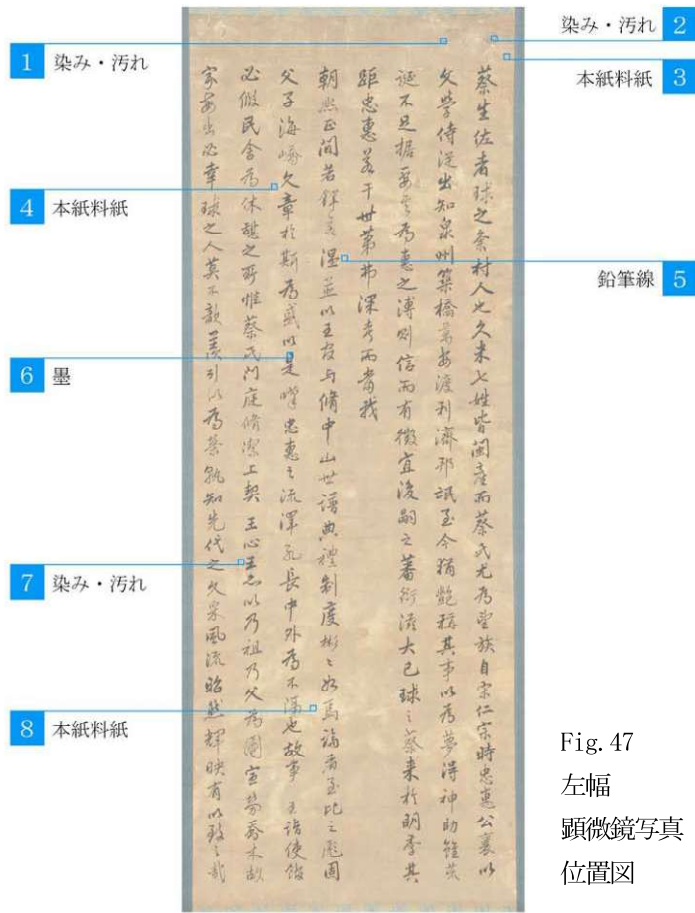 染み・汚れ 2
1 染み・汚れ
本紙料紙 3
4 本紙料紙
鉛筆線 5
6 墨
7 染み・汚れ
8 本紙料紙
蔡生佐者球之条村人也久米七姓皆閩産而蔡氏尤為望族自宋仁宗時忠惠公襄以
文學侍従出知泉州築橋萬安渡利濟邦氓至今猶艶稱其事以為夢得神助雖荒
誕不足据要之為惠之溥則信而有徴宜後嗣之蕃衍滋大已球之蔡来於明季其
距忠惠若干世第弗深考而當我
朝熙正間若鐸若温並以王官与脩中山世譜典禮制度彬〻如焉論者至比之彪固
父子海嶠文章於斯為盛以是嘆忠惠之流澤孔長中外為不隔也故事 王詣使館
必假民舎為休憩之所惟蔡氏門庭脩潔上契 王心王亦以乃祖乃父為國宣勞喬木故
家每出必幸球之人莫不歆羨引以為榮孰知先代之文采風流昭然輝映有以致之哉
Fig.47
左幅
顕微鏡写真
位置図